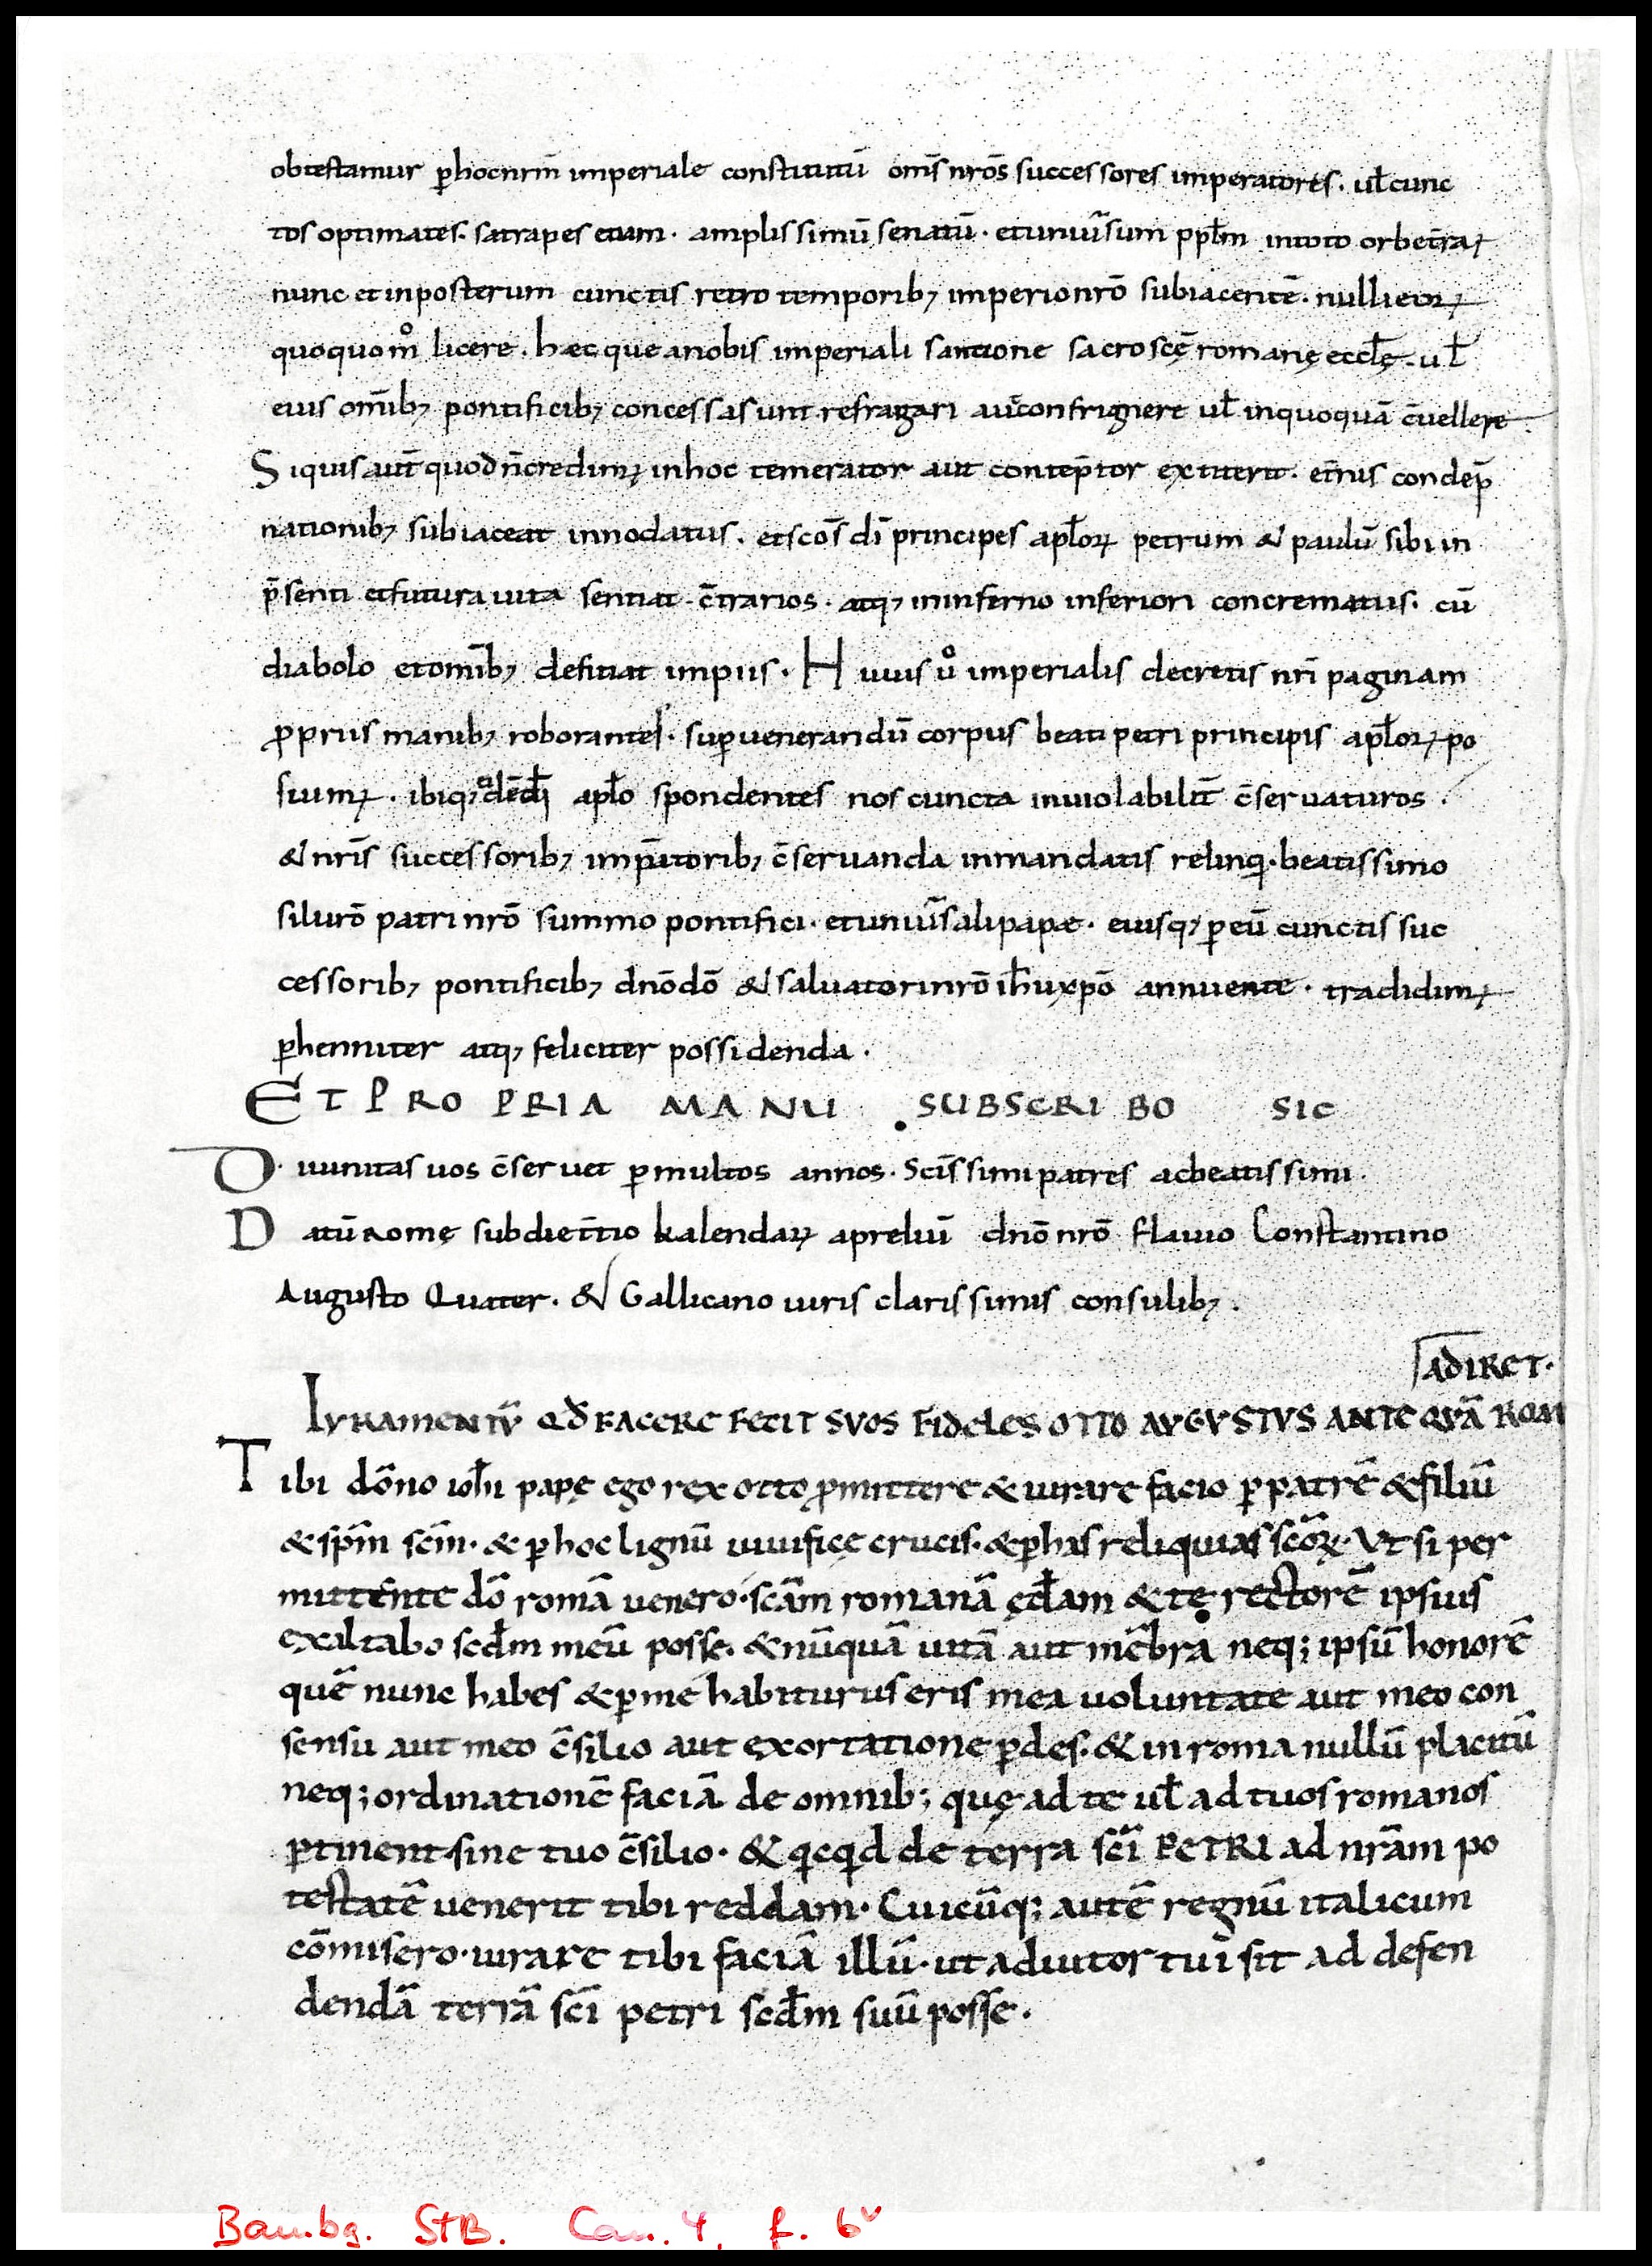 obtestamur ꝑhocnrm̄ imperiale constitutū om̄s nrōs successores imperatores. ul̄ cunc
tos optimates. satrapes etiam. amplissimū senatū. et uniuersum ppl̄m in toto orbe t̄raꝝ
nunc et inposterum cunctis retro temporib; imperio nrō subiacentē. nulli eoꝝ
quoquo mͦ licere. hæc que a nobis imperiali sanctione sacro scę̄ romanę eccl̄ę. ul̄
eius om̄ib; pontificib; concessa sunt refragari aut̄ confrignere ul̄ in quoquā c̄uellere
Siquis aut̄ quod n̄ credimꝰ in hoc temerator aut contēptor extiterit. et̄nis condēp
nationib; subiaceat innodatus. et scōs dī principes apl̄oꝝ petrum & paulū sibi in
p̄senti et futura uita sentiat c̄trarios. atq; in inferno inferiori concrematus. cū
diabolo et om̄ib; deficiat impiis. Huius uͦ imperialis decretis nr̄i paginam
ꝓpriis manib; roborantes. suꝑ uenerandū corpus beati petri principis apl̄oꝝ po
suimꝰ. ibiq; apl̄o spondentes nos cuncta inuiolabilit̄ c̄seruaturos.
& nrīs successorib; imp̄atorib; c̄seruanda in mandatis relinqi. beatissimo
silurō patri nrō summo pontifici. et uniūsali papæ. eiusq; ꝑ eū cunctis suc
cessorib; pontificib; dnō dō & saluatori nrō ih̄u xp̄o annuente. tradidimꝰ
ꝑhenniter atq; feliciter possidenda.
ET PROPRIA MANU SUBSCRIBO SIC
Diuinitas uos c̄seruet ꝑ multos annos. Scīssimi patres ac beatissimi.
Datū romę sub die t̄tio kalendaꝝ apreliū dnō nrō flauio Constantino
Augusto Quater. & Gallicano uiris clarissimis consulib;.
ADIRET.
IVRAMENTV̄ QD̄ FACERE FECIT SVOS FIDELES OTTO AVGVSTVS ANTE QVĀ ROM
Tibi dōno ioh̄i papę ego rex otto ꝓmittere & iurare facio ꝑ patrē & filiū
& sp̄m scm̄. & ꝑ hoc lignū uiuificę crucis. & ꝑ has reliquias scōꝝ. Vt si per
mittente dō romā uenero. scām romanā ęcl̄am & te rectorē ipsius
exaltabo scd̄m meū posse. & nūquā uitā aut mēbra neq; ipsū honorē
quē nunc habes & ꝑ me habiturus eris mea uoluntate aut meo con
sensu aut meo c̄silio aut exortatione ꝑdes. & in roma nullū placitū
neq; ordinationē faciā de omnib; quę ad te ul̄ ad tuos romanos
ꝑtinent sine tuo c̄silio. & qicqid de terra scī PETRI ad nrām po
testatē uenerit tibi reddam. Cuicūq; autē regnū italicum
cōmisero. iurare tibi faciā illū. ut adiutor tui sit ad defen
dendā terrā scī petri scd̄m suū posse.
Bambg. StB. Can. 4, f. 6ᵛ